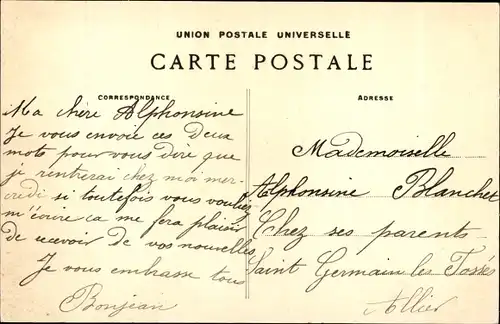 UNION POSTALE UNIVERSELLE
CARTE POSTALE
CORRESPONDANCE
Ma chère Alphonsine
Je vous envoie ces deux
mots pour vous dire que
je rentrerai chez moi mer-
credi si toutefois vous vouliez
m'écrire ca me fera plaisir
de recevoir de vos nouvelles
Je vous embrasse tous
Bonjean
ADRESSE
Mademoiselle
Alphonsine Blanchet
Chez ses parents
Saint Germain les Fossés
Allier